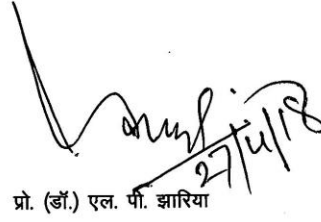 27/4/18
प्रो. (डॉ.) एल. पी. झारिया